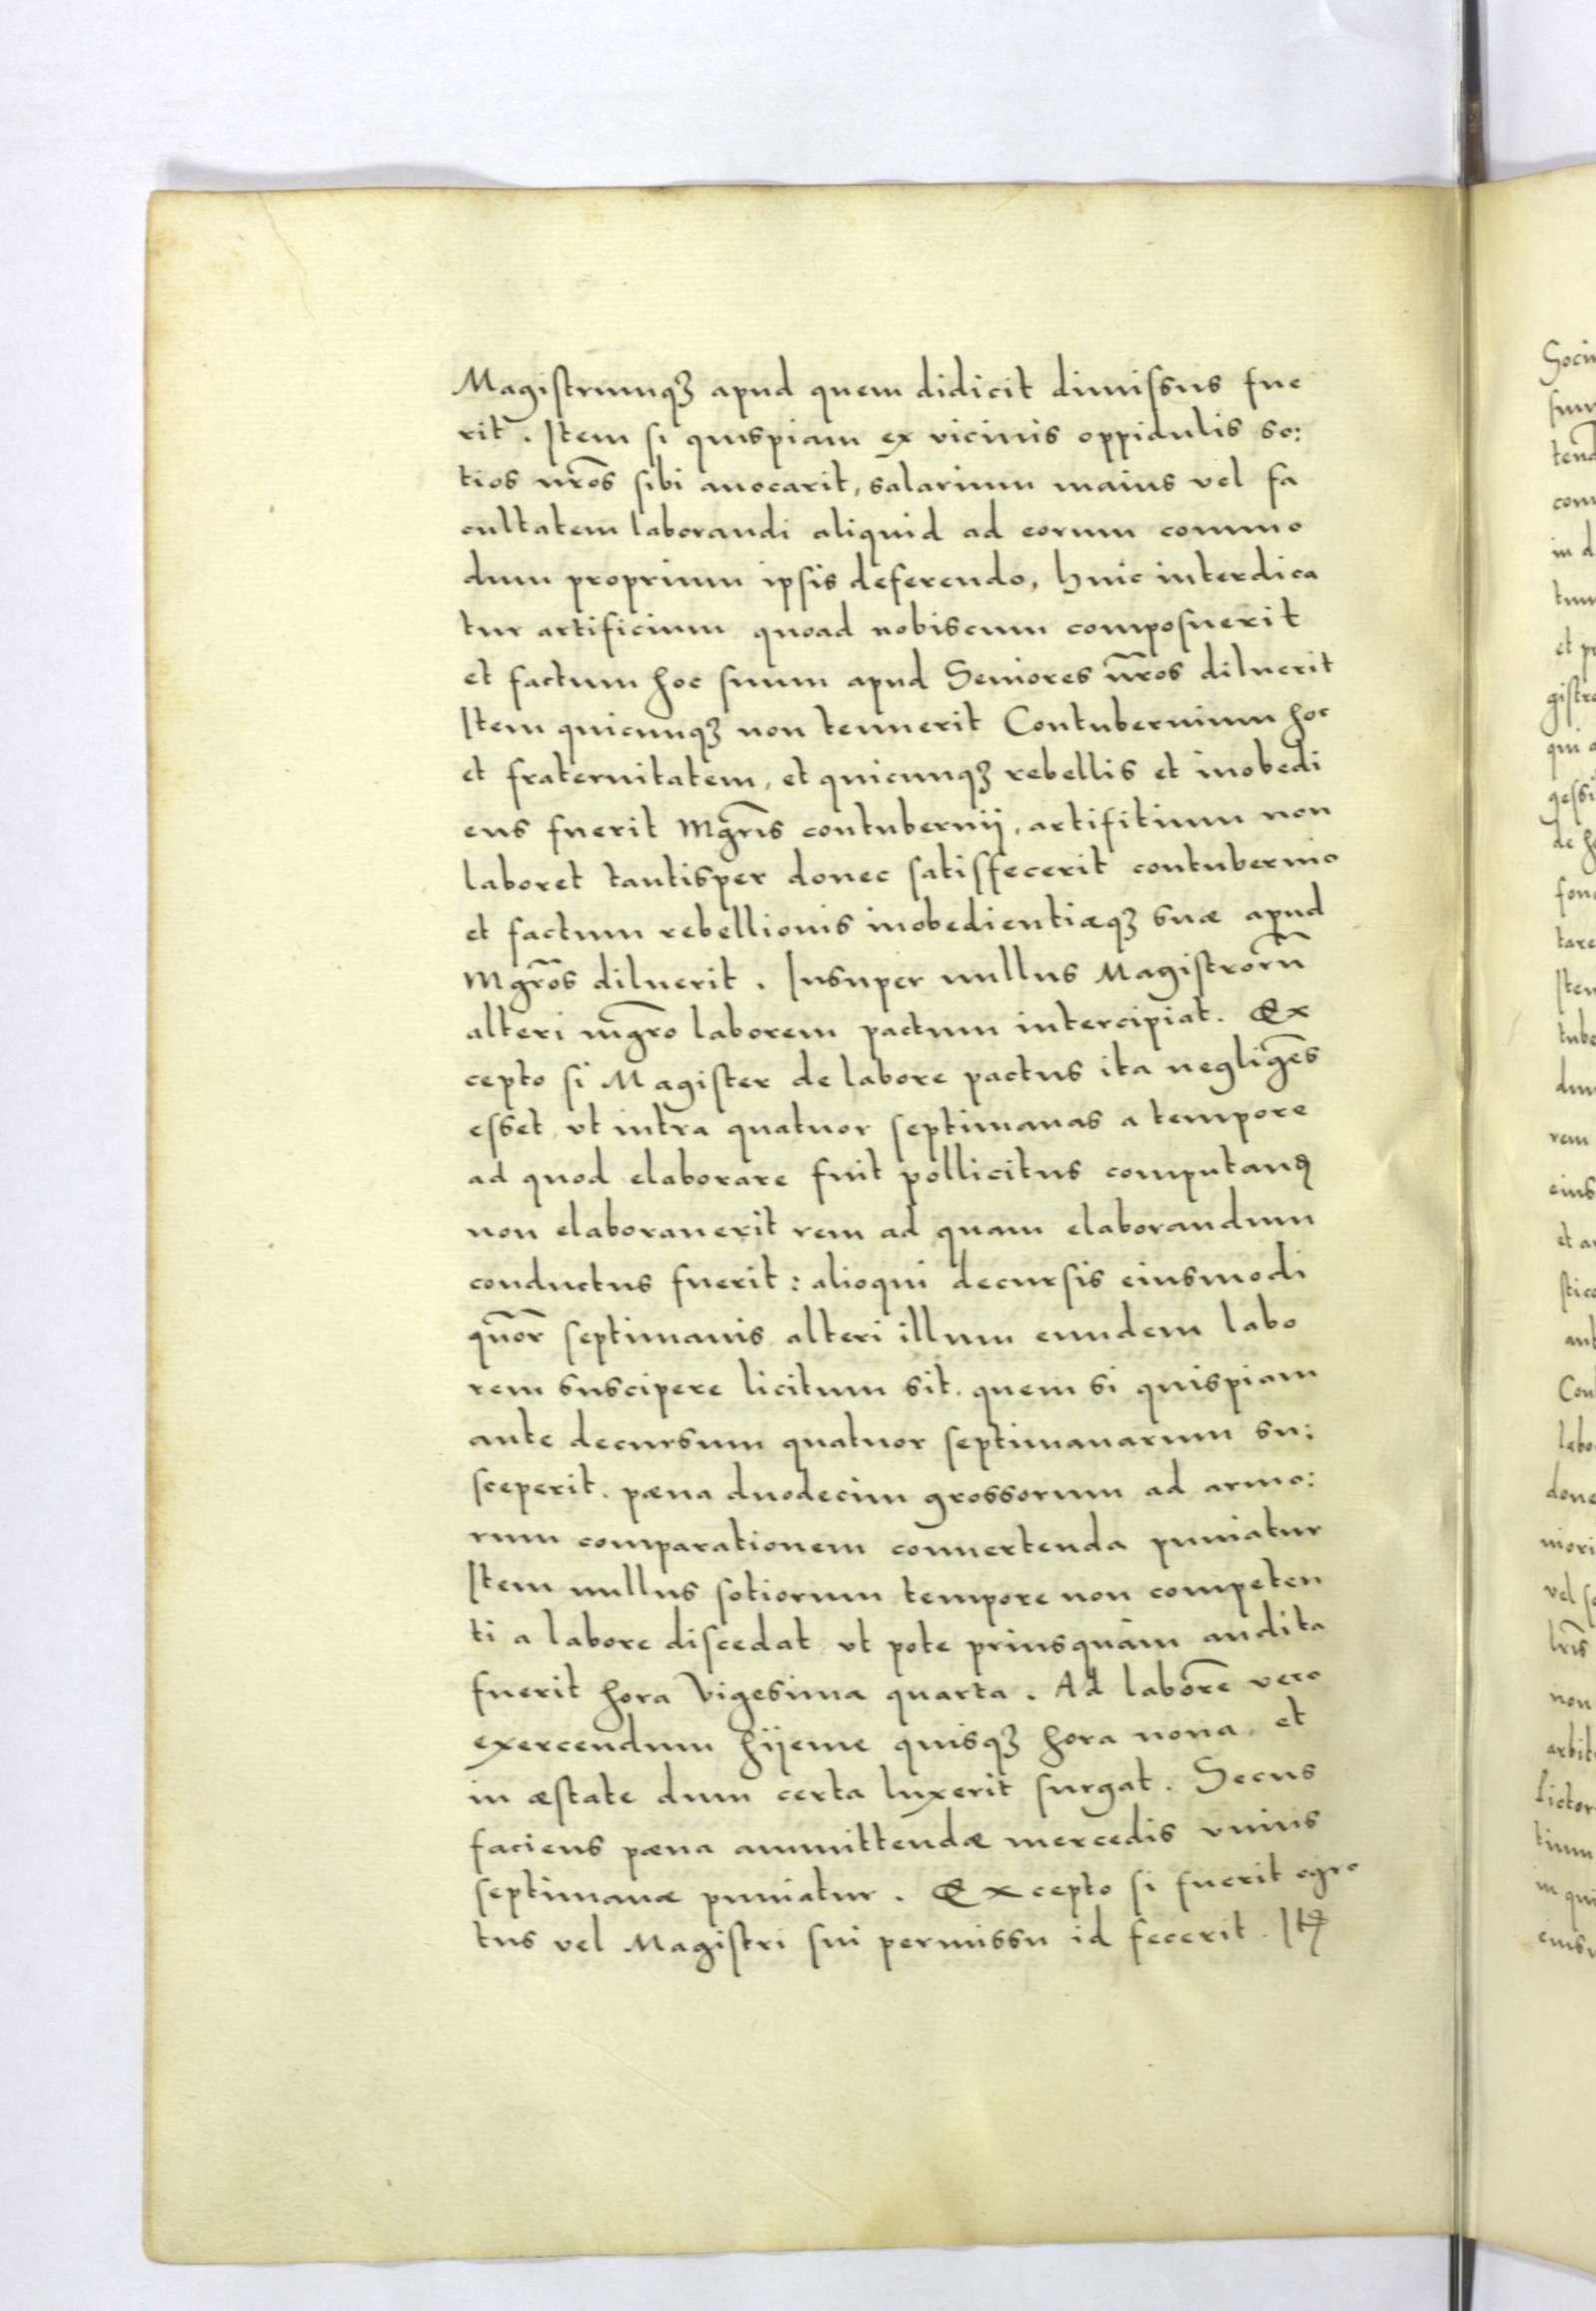 Magistrumqꝫ apud quem didicit dimissus fue
rit. Item si quispiam ex vicinis oppidulis so:
tios nr̃os sibi auocarit, salarium maius vel fa
cultatem laborandi aliquid ad eorum commo
dum proprium ipsis deferendo, huic interdica
tur artificium quoad nobiscum composuerit
et factum hoc suum apud Seniores nr̃os diluerit
Item quicunqꝫ non tenuerit Contubernium hoc
et fraternitatem, et quicunqꝫ rebellis et inobedi
ens fuerit Mgr̃is contubernij, artifitium non
laboret tantisper donec satisfecerit contubernio
et factum rebellionis inobedientiæqꝫ suæ apud
Mgr̃os diluerit. Insuper nullus Magistror̃u
alteri mgr̃o laborem pactum intercipiat. Ex
cepto si Magister de labore pactus ita negligẽs
esset vt intra quatuor septimanas a tempore
ad quod elaborare fuit pollicitus computanꝺ
non elaborauerit rem ad quam elaborandum
conductus fuerit: alioqui decursis eiusmodi
qũor septimanis alteri illum eundem labo
rem suscipere licitum sit. quem si quispiam
ante decursum quatuor septimanarum su:
sceperit. pæna duodecim grossorum ad armo:
rum comparationem conuertenda puniatur
Item nullus sotiorum tempore non competen
ti a labore discedat vt pote priusquam audita
fuerit hora vigesima quarta. Ad laborẽ vero
exercendum hijeme quisqꝫ hora nona, et
in æstate dum certa luxerit surgat. Secus
faciens pæna ammittendæ mercedis vnius
septimanæ puniatur. Excepto si fuerit egro
tus vel Magistri sui permissu id fecerit. Itꝫ